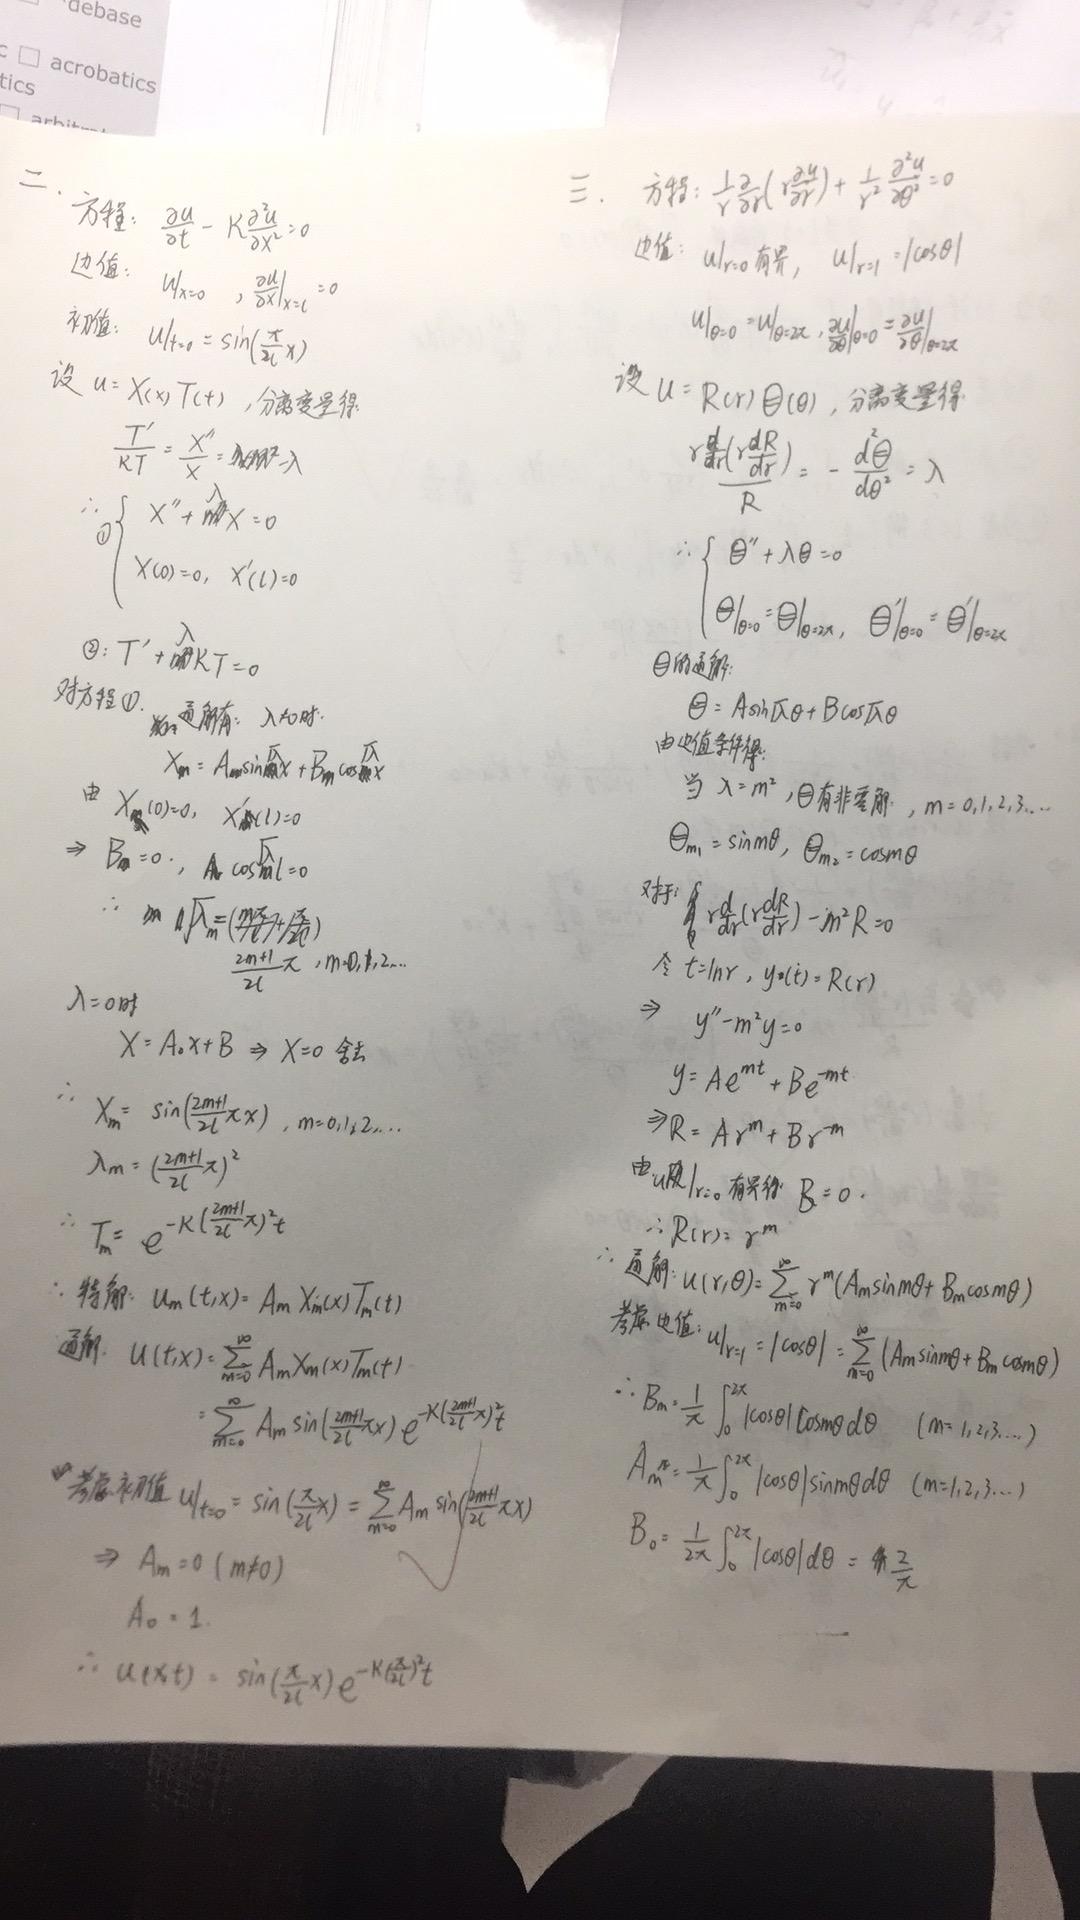 debase
acrobatics
tics
二.
方程: ∂u/∂t - K ∂²u/∂x² = 0
边值: u|x=0 , ∂u/∂x|x=l = 0
初值: u|t=0 = sin(π/2l x)
设 u = X(x)T(t) , 分离变量得
T'/KT = X''/X = -λ
∴ ① { X'' + λX = 0
X(0)=0, X'(l)=0
②: T' + λKT = 0
对方程①.
通解有: λ≠0时.
Xm = Am sin√λx + Bm cos√λx
由 X(0)=0, X'(l)=0
⇒ Bm = 0. , A cos√λl = 0
∴ √λm =
2m+1/2l π , m=0,1,2...
λ=0时
X = A₀x + B ⇒ X=0 舍去
∴ Xm = sin(2m+1/2l πx) , m=0,1,2,...
λm = (2m+1/2l π)²
∴ Tm = e^-K(2m+1/2l π)²t
∴ 特解: um(t,x) = Am Xm(x)Tm(t)
通解. u(t,x) = ∑m=0^∞ Am Xm(x)Tm(t)
= ∑m=0^∞ Am sin(2m+1/2l πx) e^-K(2m+1/2l π)²t
考虑初值 u|t=0 = sin(π/2l x) = ∑m=0^∞ Am sin(2m+1/2l πx)
⇒ Am = 0 (m≠0)
A₀ = 1.
∴ u(x,t) = sin(π/2l x) e^-K(π/2l)²t
三.
方程: 1/r ∂/∂r (r ∂u/∂r) + 1/r² ∂²u/∂θ² = 0
边值: u|r=0 有界, u|r=1 = |cosθ|
u|θ=0 = u|θ=2π , ∂u/∂θ|θ=0 = ∂u/∂θ|θ=2π
设 u = R(r)Θ(θ) , 分离变量得
r d/dr (r dR/dr) / R = - d²Θ/dθ² = λ
∴ { Θ'' + λθ = 0
Θ|θ=0 = Θ|θ=2π , Θ'|θ=0 = Θ'|θ=2π
Θ的通解:
Θ = A sin√λθ + B cos√λθ
由边值条件得:
当 λ = m² , Θ有非零解 , m = 0,1,2,3...
Θm1 = sinmθ, Θm2 = cosmθ
对于: r d/dr (r dR/dr) - m²R = 0
令 t = lnr , y(t) = R(r)
⇒ y'' - m²y = 0
y = Ae^mt + Be^-mt
⇒ R = Ar^m + Br^-m
由u|r=0 有界得 B = 0.
∴ R(r) = r^m
∴ 通解: u(r,θ) = ∑m=0^∞ r^m (Am sinmθ + Bm cosmθ)
考虑边值: u|r=1 = |cosθ| = ∑m=0^∞ (Am sinmθ + Bm cosmθ)
∴ Bm = 1/π ∫0^2π |cosθ| cosmθdθ (m=1,2,3...)
Am = 1/π ∫0^2π |cosθ| sinmθdθ (m=1,2,3...)
B₀ = 1/2π ∫0^2π |cosθ| dθ = 2/π